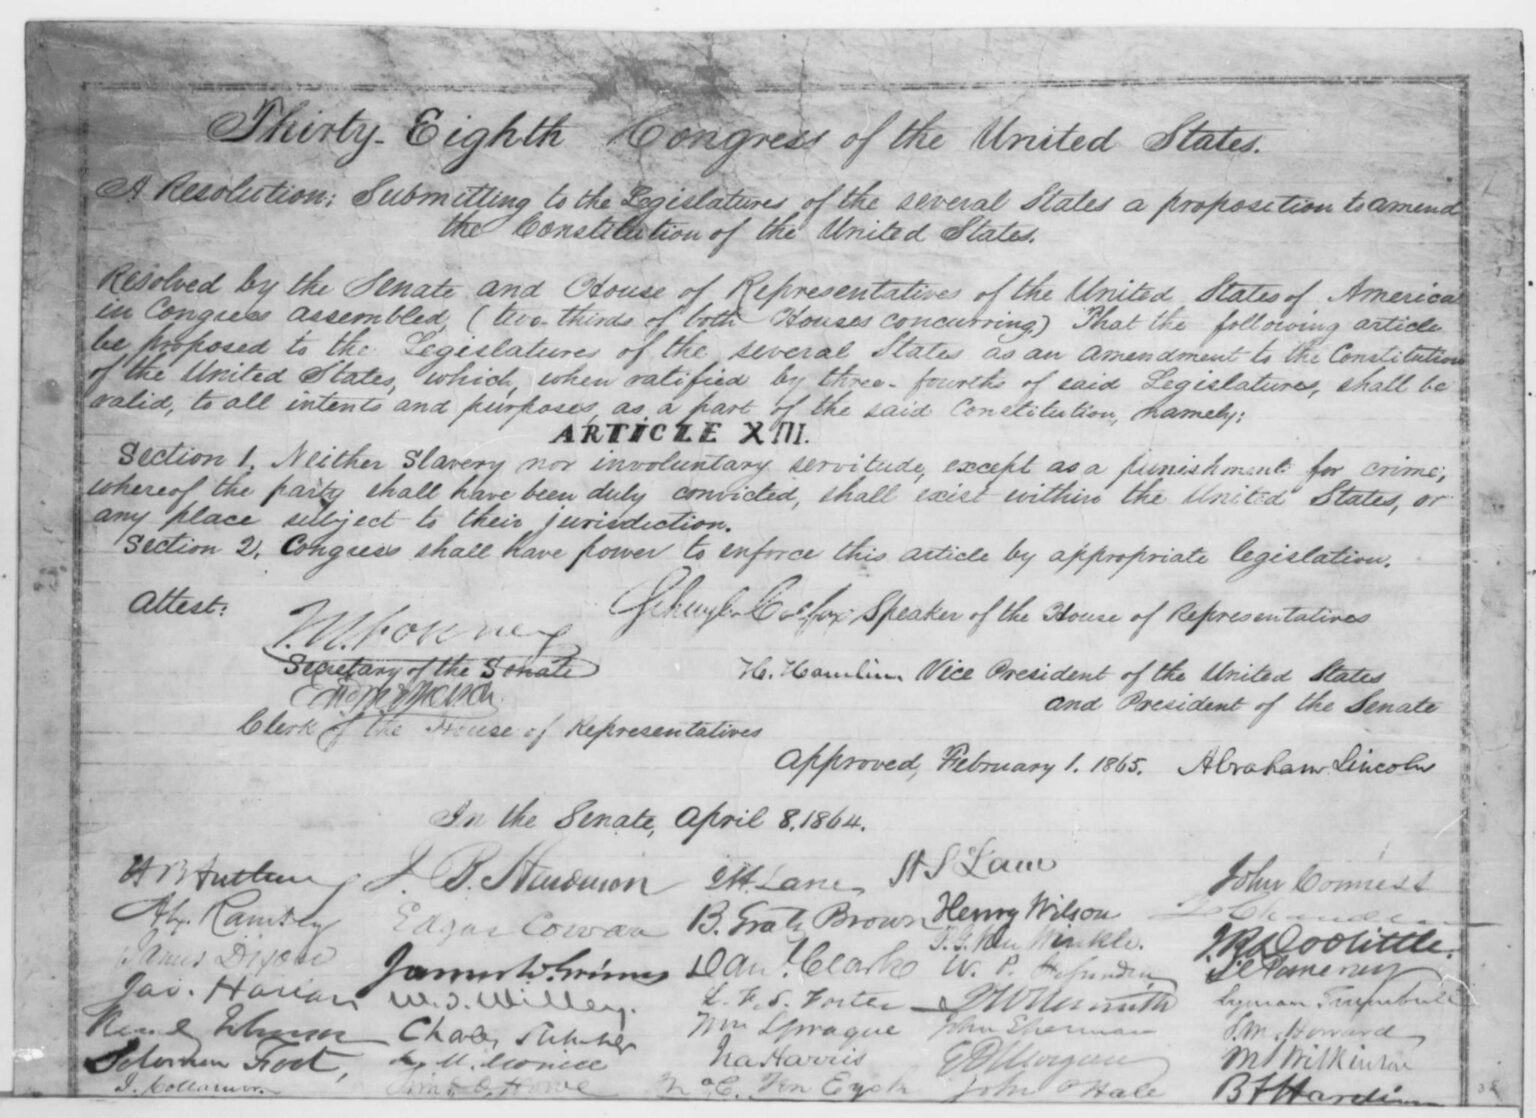 Thirty-Eighth Congress of the United States.
A Resolution; Submitting to the Legislatures of the several States a proposition to amend
the Constitution of the United States.
Resolved by the Senate and House of Representatives of the United States of America
in Congress assembled, (two-thirds of both Houses concurring,) That the following article
be proposed to the Legislatures of the several States as an amendment to the Constitution
of the United States, which, when ratified by three-fourths of said Legislatures, shall be
valid, to all intents and purposes, as a part of the said Constitution, namely:
ARTICLE XIII.
Section 1. Neither Slavery nor involuntary servitude, except as a punishment for crime,
whereof the party shall have been duly convicted, shall exist within the United States, or
any place subject to their jurisdiction.
Section 2. Congress shall have power to enforce this article by appropriate legislation.
Attest:
J.W. Forney
Secretary of the Senate
Schuyler Colfax Speaker of the House of Representatives
H. Hamlin Vice President of the United States
and President of the Senate
Clerk of the House of Representatives
Approved, February 1. 1865. Abraham Lincoln
In the Senate, April 8, 1864.
J. B. Henderson
J H Lane
H S Lane
John Conness
Alex. Ramsey
Edgar Cowan
B. Gratz Brown
Henry Wilson
Z Chandler
James Dixon
James W. Grimes
Dan'l Clark
P. G. Van Winkle.
J R Doolittle.
Jas. Harlan
W. T. Willey.
L. F. S. Foster
J W Nesmith
Lyman Trumbull
Charles Sumner
Wm Sprague
John Sherman
J. M. Howard
Solomon Foot,
Ira Harris
E D Morgan
M S Wilkinson
J. Collamer.
T. O. Howe
Ten Eyck
John P Hale
B F Harding